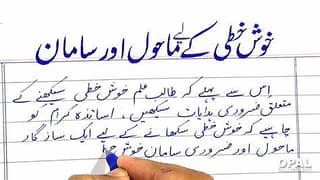 خوش خطی کے لیے ماحول اور سامان
اِس سے پہلے کہ طالب علم خوش خطی سیکھنے کے
متعلق ضروری ہدایات سیکھیں، اساتذہ کرام کو
چاہیے کہ خوش خطی سکھانے کے لیے ایک ساز گار
ماحول اور ضروری سامان خوش
OPAL